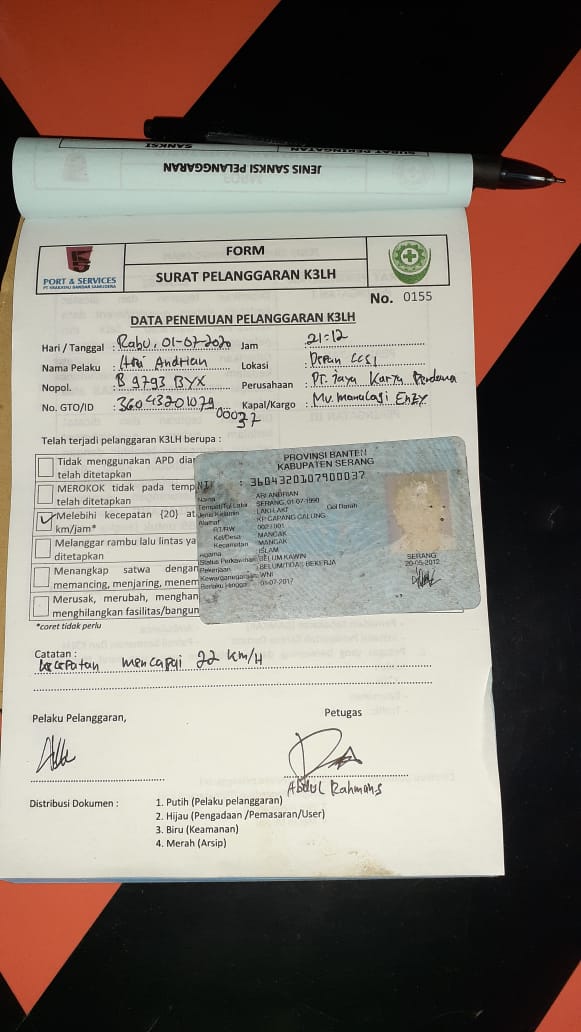 JENIS SANKSI PELANGGARAN
SANKSI
PORT & SERVICES
PT KRAKATAU BANDAR SAMUDERA
FORM
SURAT PELANGGARAN K3LH
No. 0155
DATA PENEMUAN PELANGGARAN K3LH
Hari / Tanggal : Rabu, 01-07-2020 Jam : 21:12
Nama Pelaku : Ari Andrian Lokasi : Depan CCSI
Nopol. : B 9793 BYX Perusahaan : PT. Jaya Karya Perdana
No. GTO/ID : 3604320107900037 Kapal/Kargo : MV. Manalagi Enzy
Telah terjadi pelanggaran K3LH berupa :
Tidak menggunakan APD
telah ditetapkan
MEROKOK tidak pada
telah ditetapkan
Melebihi kecepatan (20)
km/jam*
Melanggar rambu lalu lintas
ditetapkan
Menangkap satwa dengan
memancing, menjaring,
Merusak, merubah,
menghilangkan
*coret tidak perlu
PROVINSI BANTEN
KABUPATEN SERANG
NIK : 3604320107900037
Nama : ARI ANDRIAN
Tempat/Tgl Lahir : SERANG, 01-07-1990
Jenis Kelamin : LAKI-LAKI Gol Darah
Alamat : KP. GAPANG CALUNG
RT/RW : 002/001
Kel/Desa : MANCAK
Kecamatan : MANCAK
Agama : ISLAM
Status Perkawinan : BELUM KAWIN
Pekerjaan : BELUM/TIDAK BEKERJA
Kewarganegaraan : WNI
Berlaku Hingga : 01-07-2017
SERANG
20-05-2012
Catatan :
kecepatan mencapai 22 KM/H
Pelaku Pelanggaran,
Petugas
Abdul Rahman.S
Distribusi Dokumen :
1. Putih (Pelaku pelanggaran)
2. Hijau (Pengadaan /Pemasaran/User)
3. Biru (Keamanan)
4. Merah (Arsip)